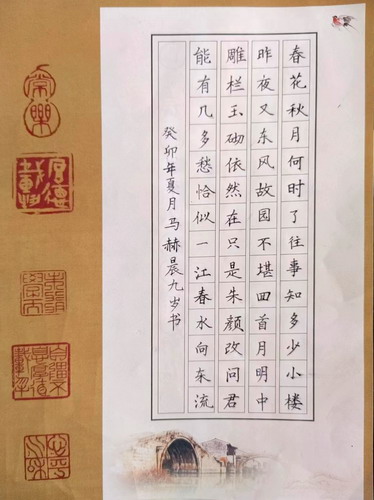 春花秋月何时了往事知多少小楼
昨夜又东风故园不堪回首月明中
雕栏玉砌依然在只是朱颜改问君
能有几多愁恰似一江春水向东流
癸卯年夏月马赫晨九岁书
常樂
厚德載物